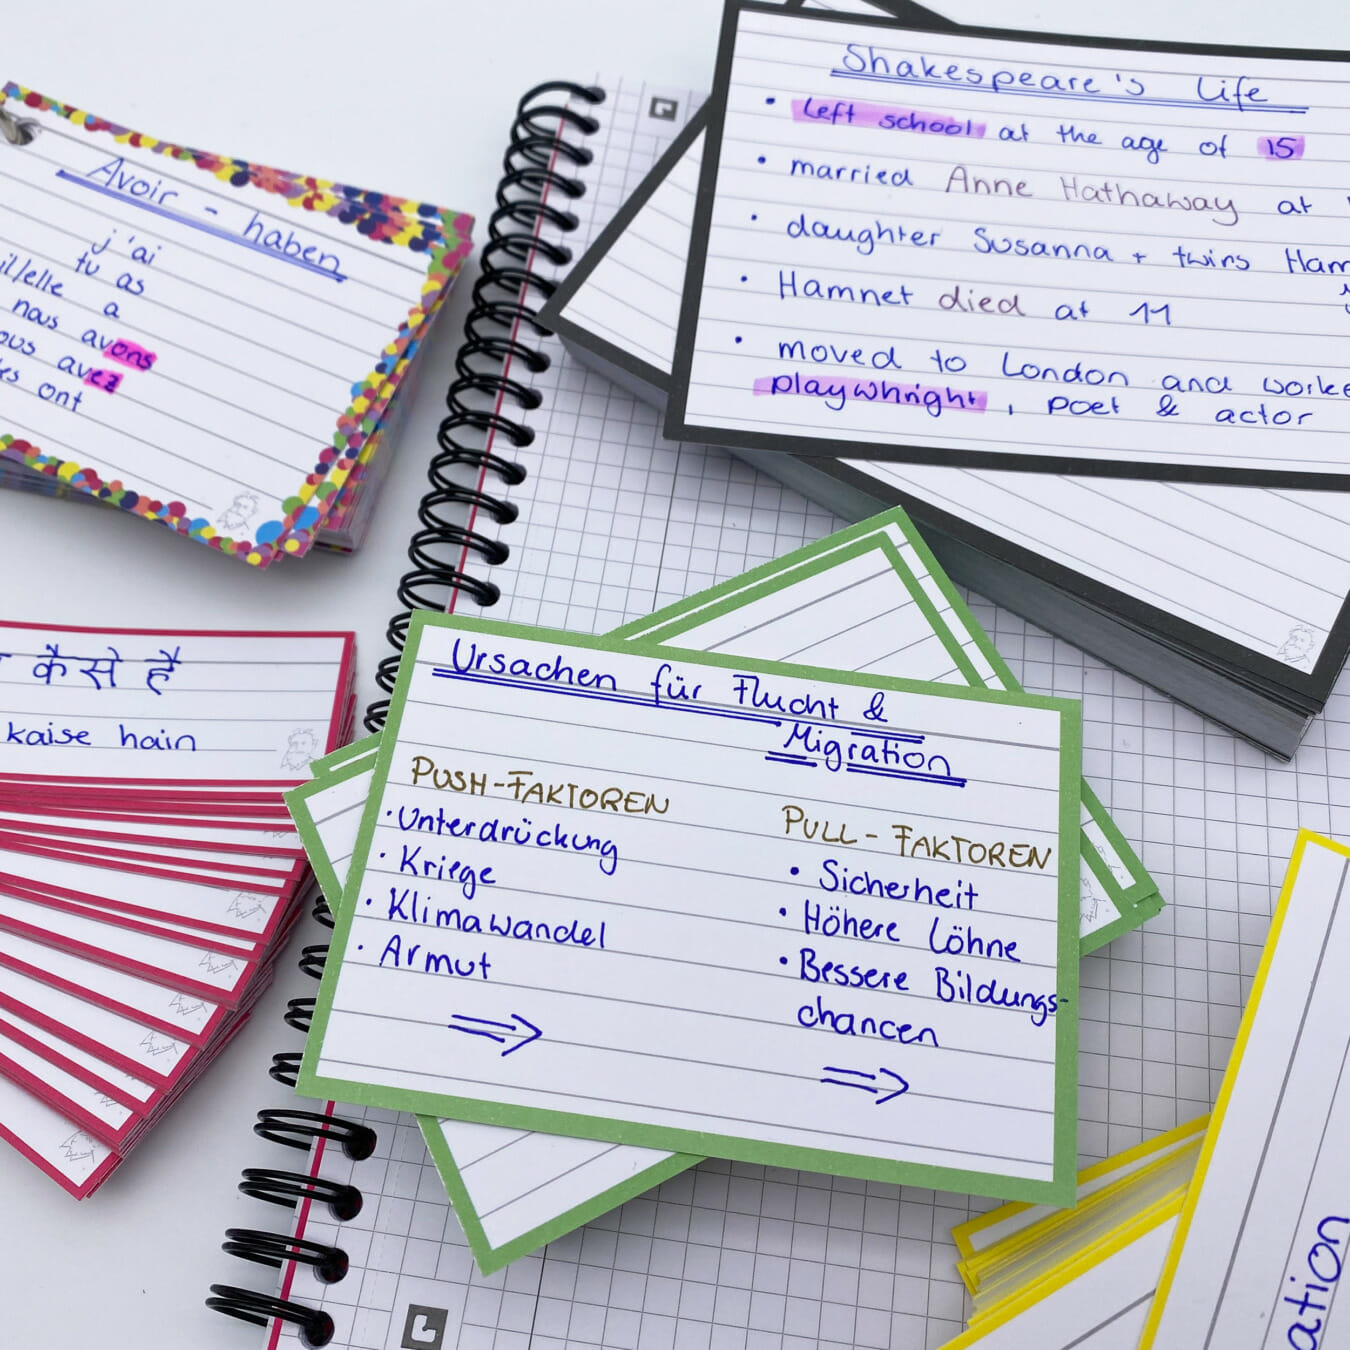 Avoir - haben
j'ai
tu as
il/elle a
nous avons
avez
ont
Shakespeare's Life
• Left school at the age of 15
• married Anne Hathaway at
• daughter Susanna + twins
• Hamnet died at 11
• moved to London and
playwhright, poet & actor
कैसे हैं
kaise hain
Ursachen für Flucht &
Migration
PUSH-FAKTOREN
• Unterdrückung
• Kriege
• Klimawandel
• Armut
⇒
PULL-FAKTOREN
• Sicherheit
• Höhere Löhne
• Bessere Bildungs-
chancen
⇒